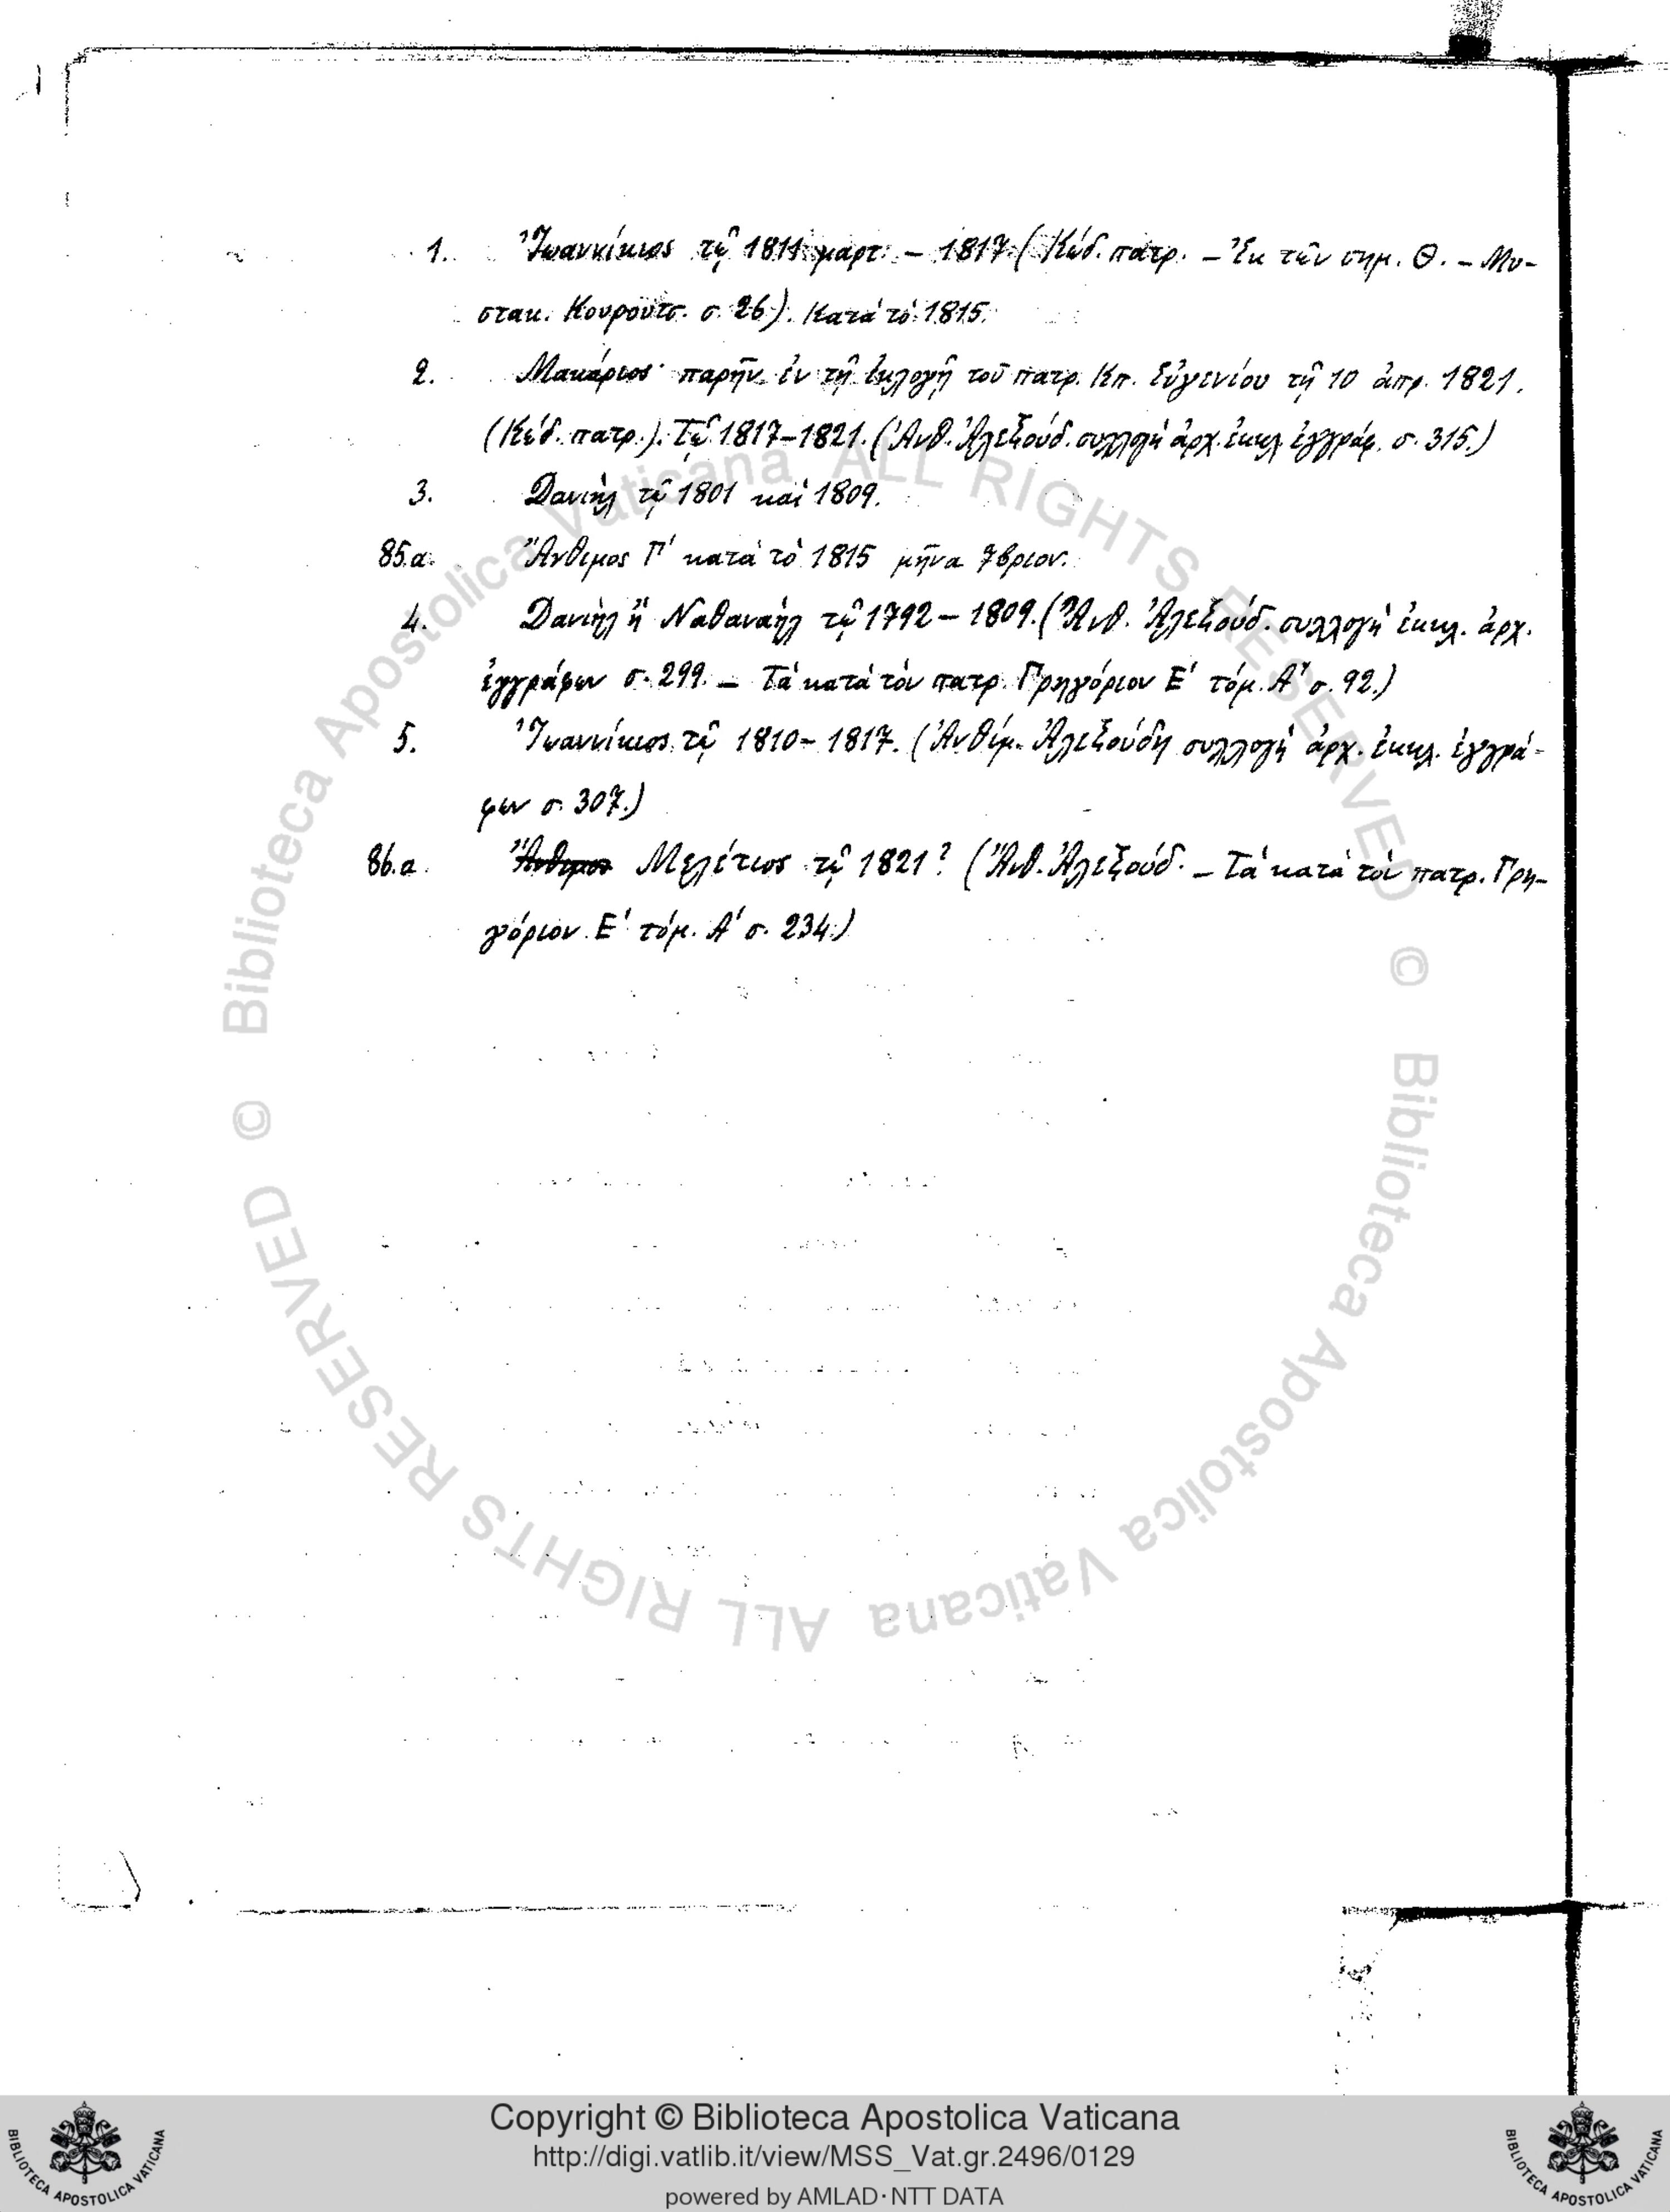 1. Ἰωαννίκιος τῷ 1811 μαρτ. – 1817. (Κώδ. πατρ. – Ἐκ τῶν σημ. Θ. – Μυ-
στακ. Κουρούτσ. σ. 26). Κατὰ τὸ 1815.
2. Μακάριος παρῆν ἐν τῇ ἐκλογῇ τοῦ πατρ. Κπ. Εὐγενίου τῇ 10 ἀπρ. 1821.
(Κώδ. πατρ.). Τῷ 1817–1821. (Ἀνθ. Ἀλεξούδ. συλλογὴ ἀρχ. ἐκκλ. ἐγγράφ. σ. 315.)
3. Δανιὴλ τῷ 1801 καὶ 1809.
85.α. Ἄνθιμος Γ' κατὰ τὸ 1815 μῆνα 7βριον.
4. Δανιὴλ ἢ Ναθαναὴλ τῷ 1792 – 1809. (Ἀνθ. Ἀλεξούδ. συλλογὴ ἐκκλ. ἀρχ.
ἐγγράφων σ. 299. – Τὰ κατὰ τὸν πατρ. Γρηγόριον Ε' τόμ. Α' σ. 92.)
5. Ἰωαννίκιος τῷ 1810 – 1817. (Ἀνθίμ. Ἀλεξούδη συλλογὴ ἀρχ. ἐκκλ. ἐγγρά-
φων σ. 307.)
86.α. Ἄνθιμος Μελέτιος τῷ 1821? (Ἀνθ. Ἀλεξούδ. – Τὰ κατὰ τὸν πατρ. Γρη-
γόριον Ε' τόμ. Α' σ. 234.)
© Biblioteca Apostolica Vaticana ALL RIGHTS RESERVED
© Biblioteca Apostolica Vaticana ALL RIGHTS RESERVED
Copyright © Biblioteca Apostolica Vaticana
http://digi.vatlib.it/view/MSS_Vat.gr.2496/0129
powered by AMLAD·NTT DATA
BIBLIOTECA APOSTOLICA VATICANA
BIBLIOTECA APOSTOLICA VATICANA